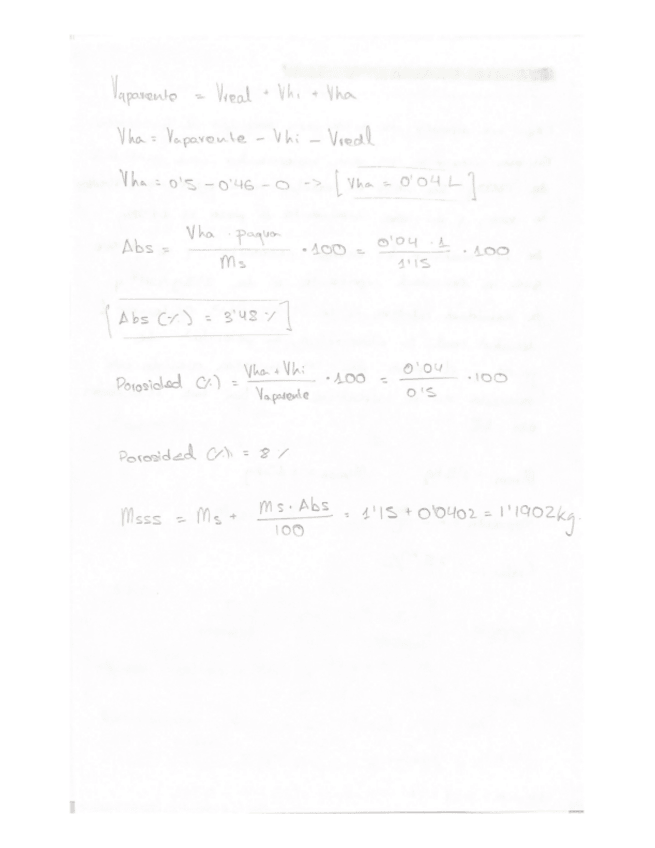 Vaparente = Vreal + Vhi + Vha
Vha = Vaparente - Vhi - Vreal
Vha = 0'5 - 0'46 - 0 -> [Vha = 0'04 L]
Abs = Vha · ρagua / Ms · 100 = 0'04 · 1 / 1'15 · 100
[Abs (%) = 3'48 %]
Porosidad (%) = Vha + Vhi / Vaparente · 100 = 0'04 / 0'5 · 100
Porosidad (%) = 8 %
Msss = Ms + Ms · Abs / 100 = 1'15 + 0'0402 = 1'1902 kg.